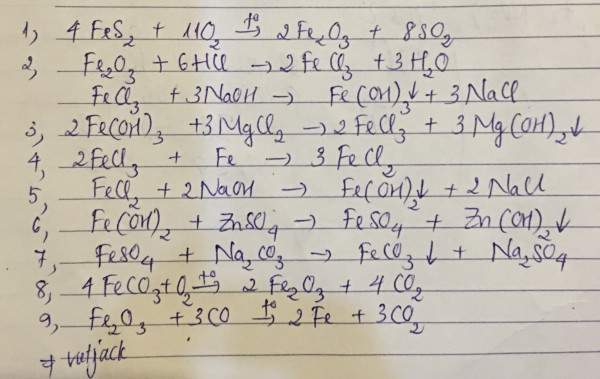 1, 4FeS₂ + 11O₂ →(t°) 2Fe₂O₃ + 8SO₂
2, Fe₂O₃ + 6HCl → 2FeCl₃ + 3H₂O
FeCl₃ + 3NaOH → Fe(OH)₃↓ + 3NaCl
3, 2Fe(OH)₃ + 3MgCl₂ → 2FeCl₃ + 3Mg(OH)₂↓
4, 2FeCl₃ + Fe → 3FeCl₂
5, FeCl₂ + 2NaOH → Fe(OH)₂↓ + 2NaCl
6, Fe(OH)₂ + ZnSO₄ → FeSO₄ + Zn(OH)₂↓
7, FeSO₄ + Na₂CO₃ → FeCO₃↓ + Na₂SO₄
8, 4FeCO₃ + O₂ →(t°) 2Fe₂O₃ + 4CO₂
9, Fe₂O₃ + 3CO →(t°) 2Fe + 3CO₂